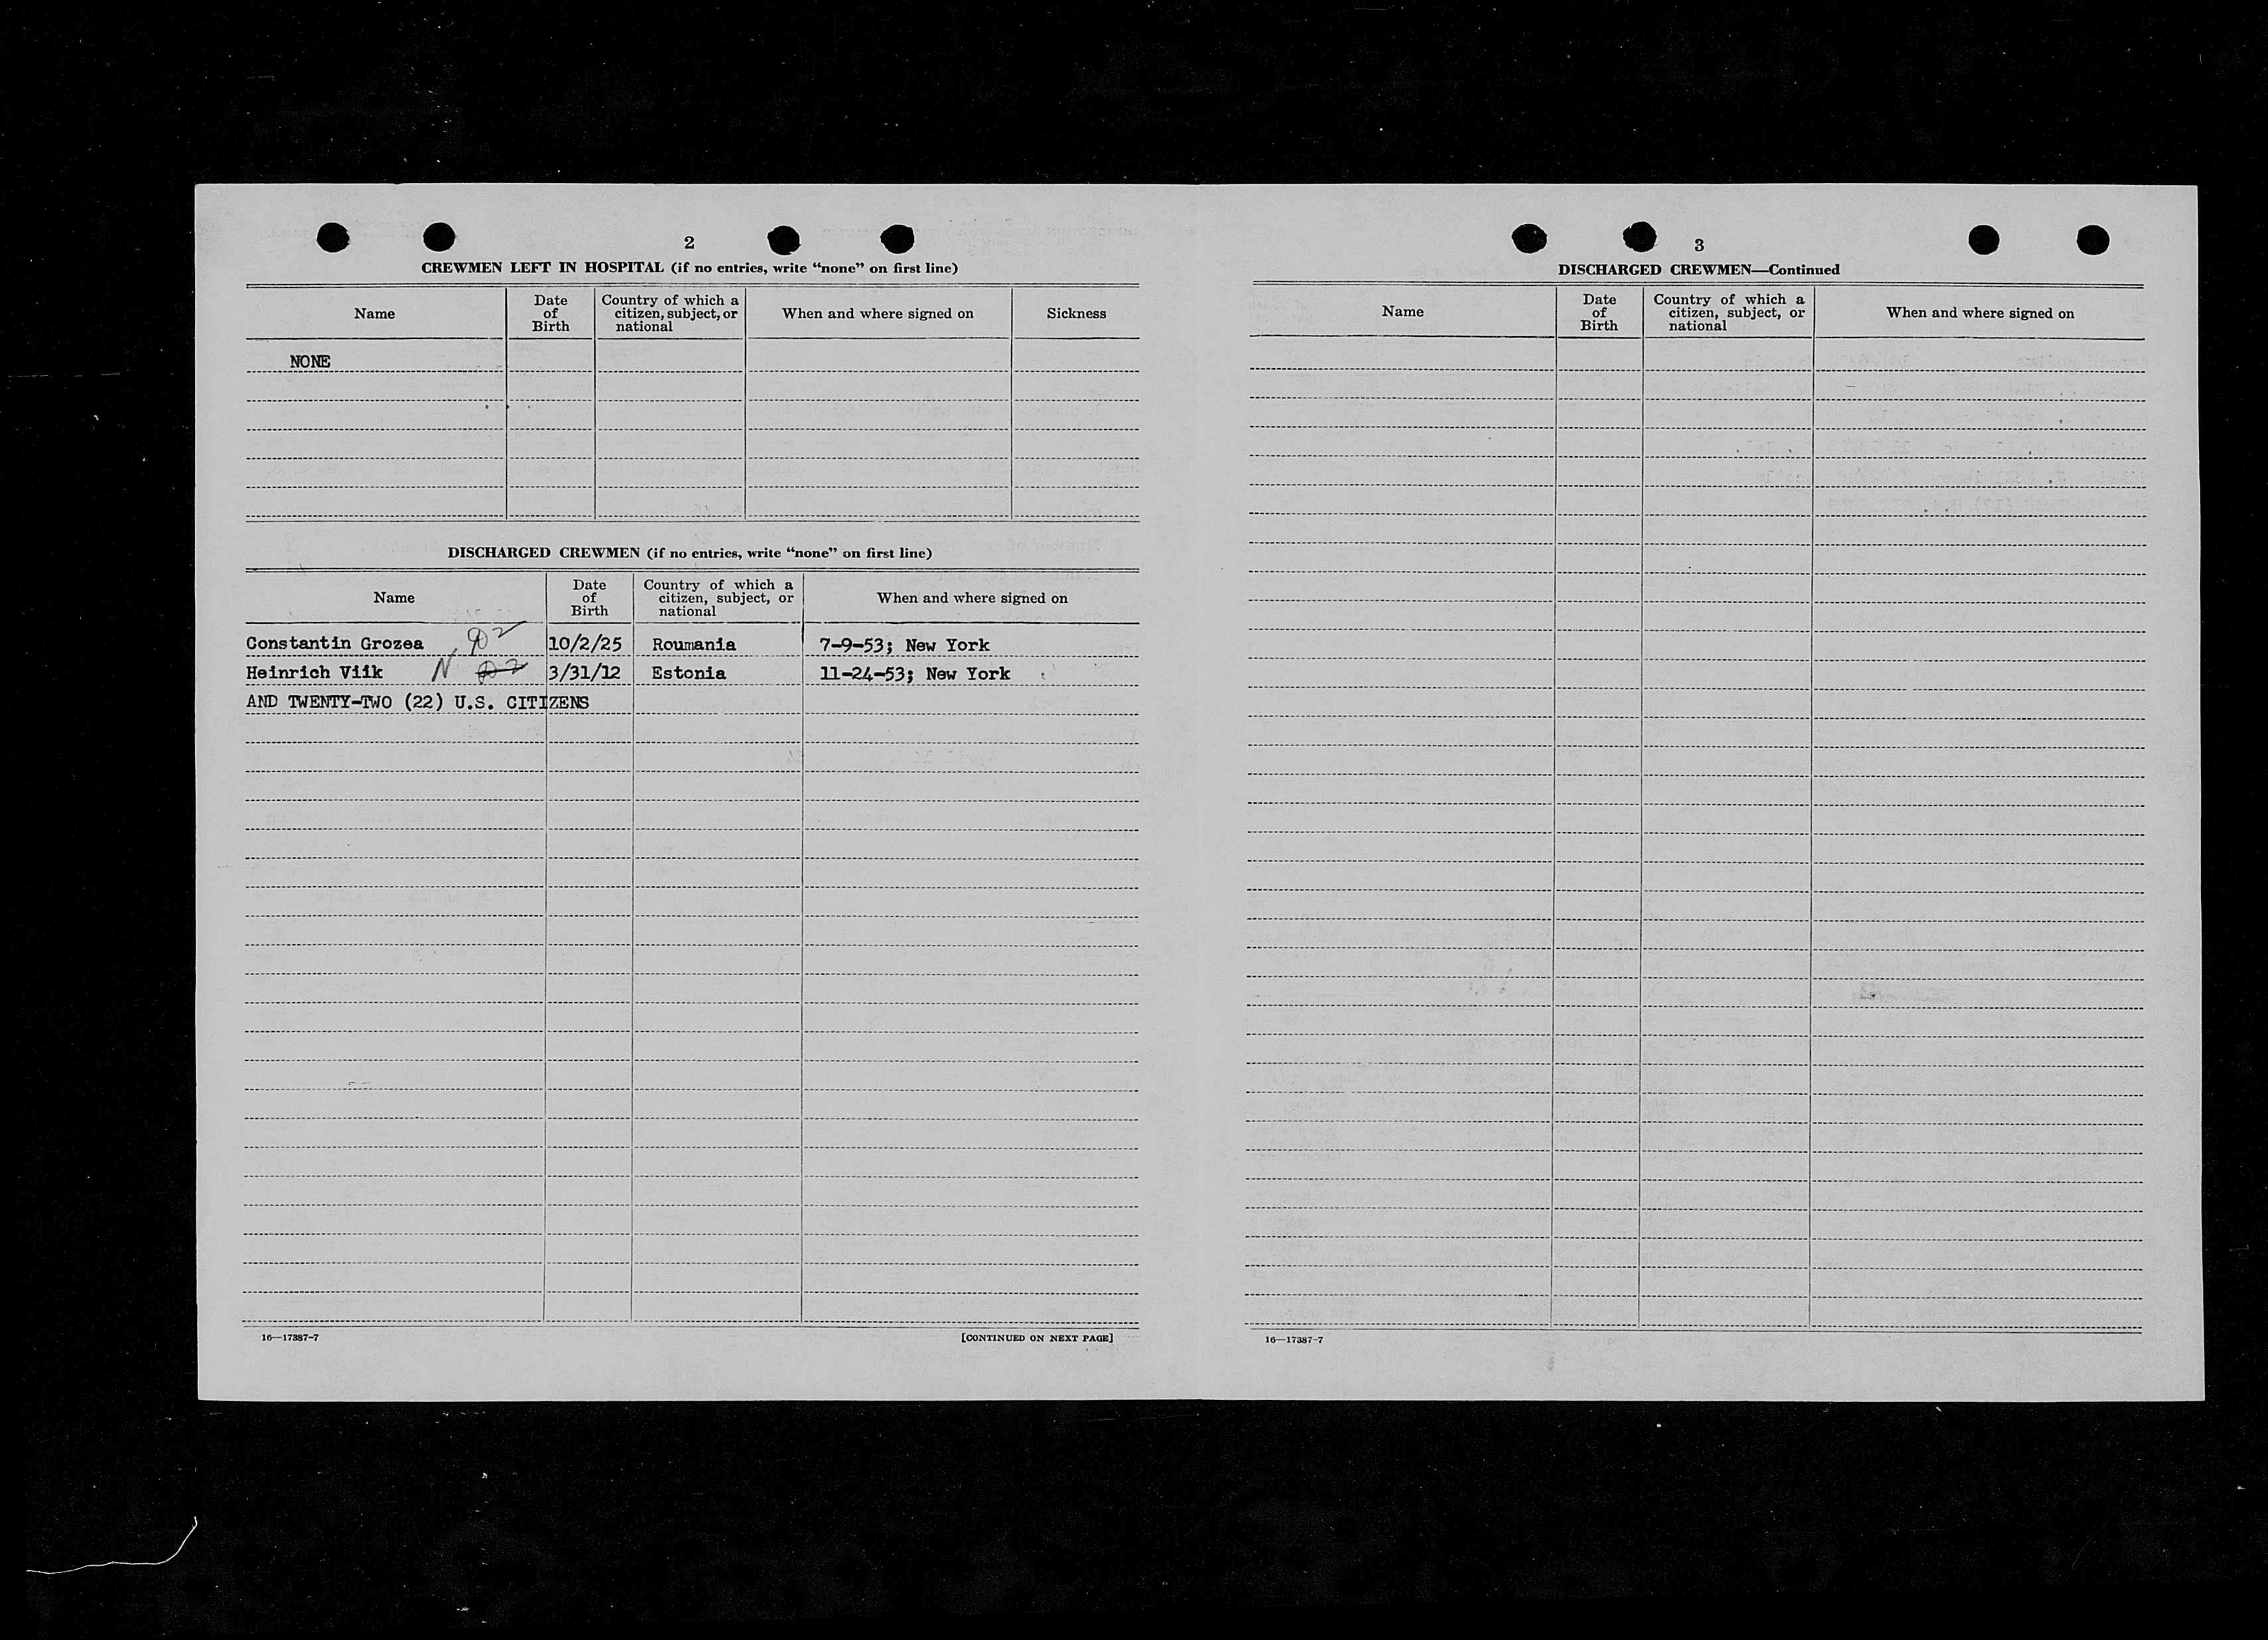 2
CREWMEN LEFT IN HOSPITAL (if no entries, write “none” on first line)
Name
Date of Birth
Country of which a citizen, subject, or national
When and where signed on
Sickness
NONE
DISCHARGED CREWMEN (if no entries, write “none” on first line)
Name
Date of Birth
Country of which a citizen, subject, or national
When and where signed on
Constantin Grozea 10/2/25 Roumania 7-9-53; New York
Heinrich Viik N 3/31/12 Estonia 11-24-53; New York
AND TWENTY-TWO (22) U.S. CITIZENS
16—17387-7
[CONTINUED ON NEXT PAGE]
3
DISCHARGED CREWMEN—Continued
Name
Date of Birth
Country of which a citizen, subject, or national
When and where signed on
16—17387-7